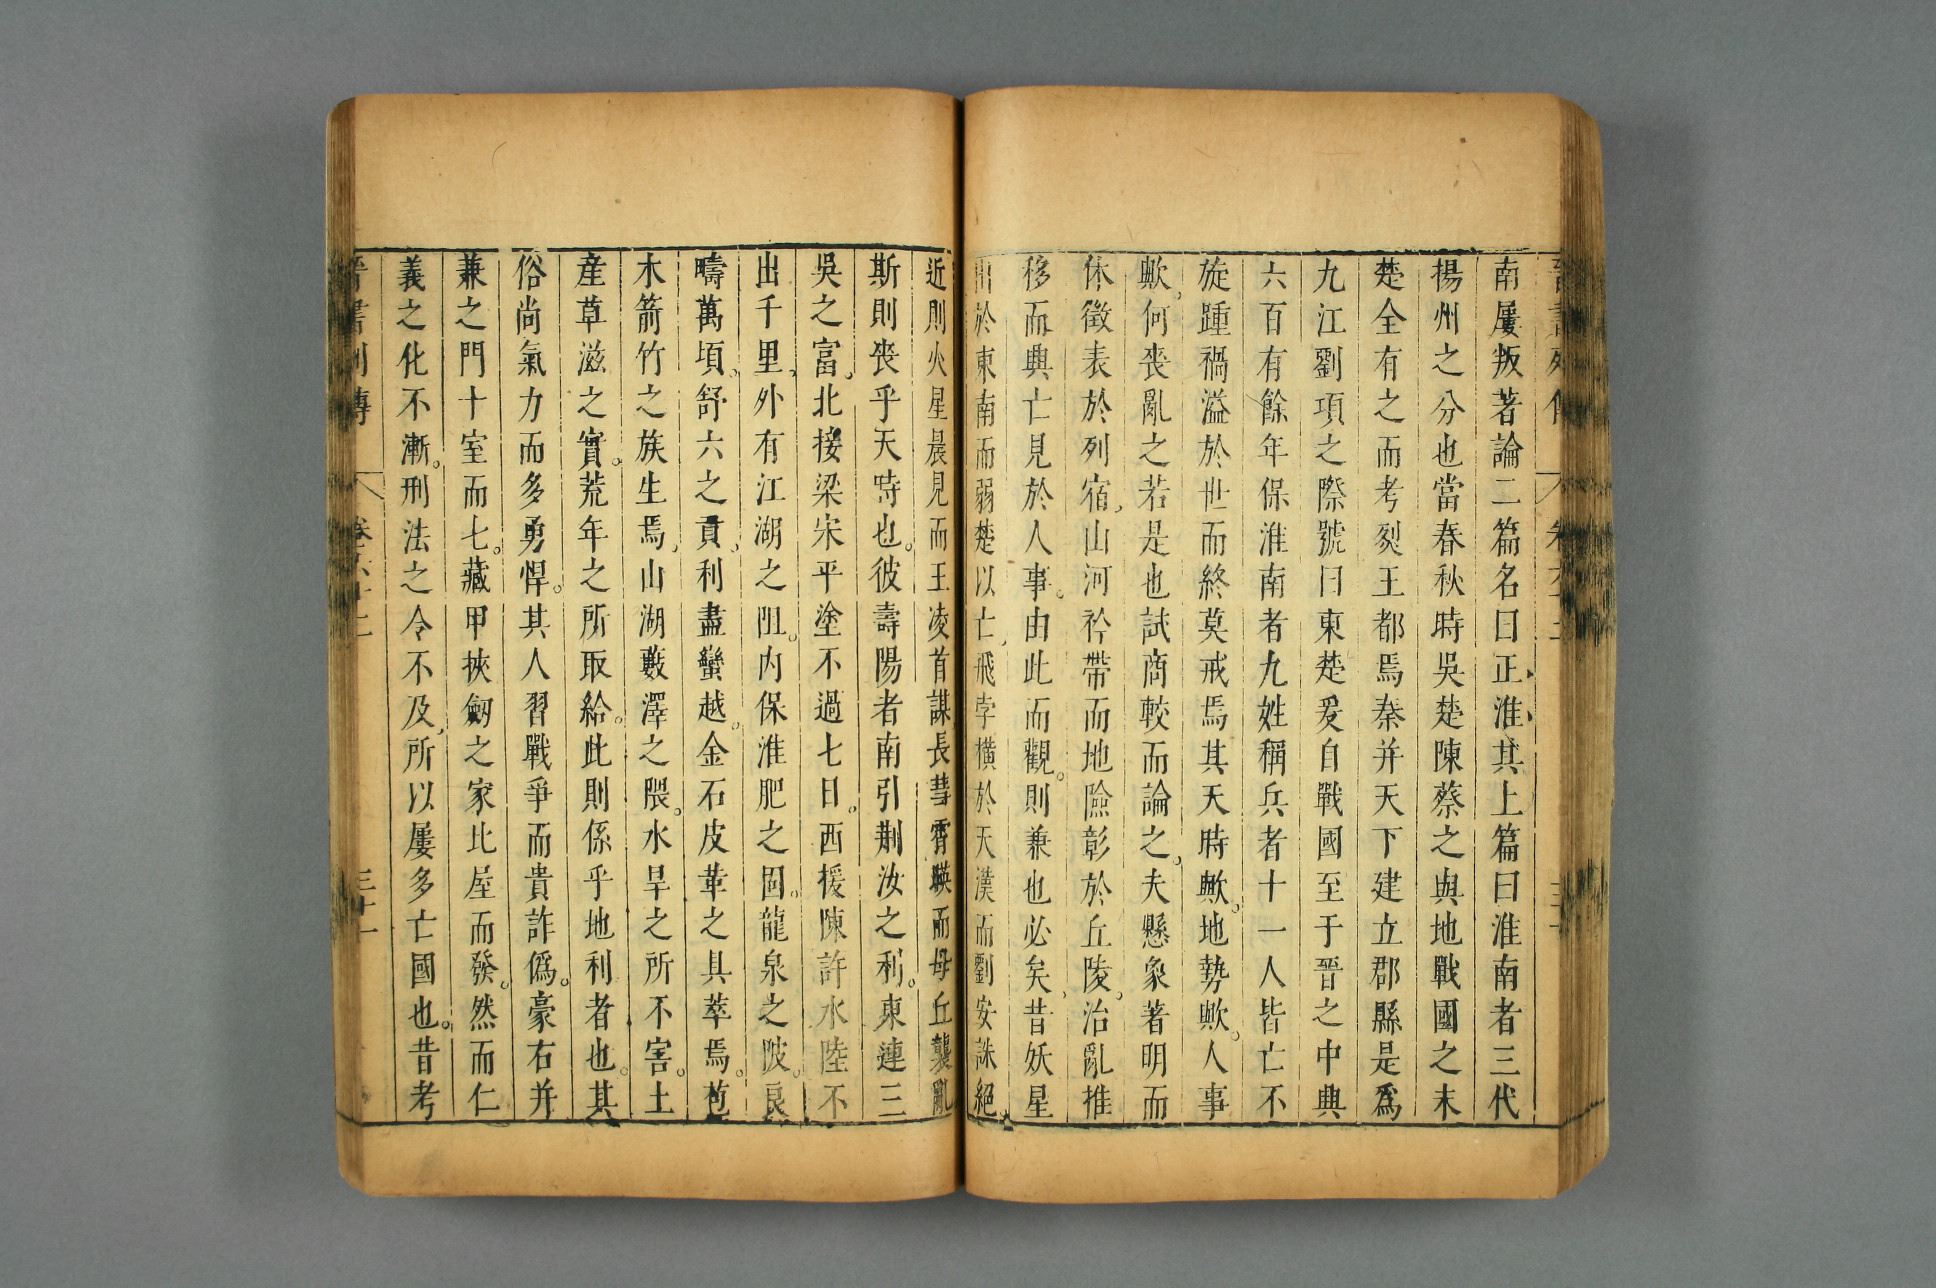 南屢叛著論二篇名曰正淮其上篇曰淮南者三代
揚州之分也當春秋時吳楚陳蔡之與地戰國之末
楚全有之而考烈王都焉秦并天下建立郡縣是爲
九江劉項之際號曰東楚爰自戰國至于晉之中興
六百有餘年保淮南者九姓稱兵者十一人皆亡不
旋踵禍溢於世而終莫戒焉其天時歟。地勢歟。人事
歟。何喪亂之若是也試商較而論之。夫懸象著明而
休徵表於列宿。山河衿帶而地險彰於丘陵。治亂推
移而興亡見於人事。由此而觀。則兼也必矣。昔妖星
出於東南而弱楚以亡。飛孛橫於天漢而劉安誅絕
近則火星晨見而王凌首謀。長彗霄暎而毋丘襲亂
斯則喪乎天時也。彼壽陽者南引荆汝之利。東連三
吳之富。北接梁宋平塗不過七日。西援陳許水陸不
出千里。外有江湖之阻。內保淮肥之固。龍泉之陂。良
疇萬頃。舒六之貢。利盡蠻越。金石皮革之具萃焉。苞
木箭竹之族生焉。山湖藪澤之隈。水旱之所不害。土
產草滋之實。荒年之所取給。此則係乎地利者也。其
俗尚氣力而多勇悍。其人習戰爭而貴詐僞。豪右并
兼之門十室而七。藏甲挾劒之家比屋而發。然而仁
義之化不漸。刑法之令不及。所以屢多亡國也。昔考
晉書列傳 卷六十二 三十一